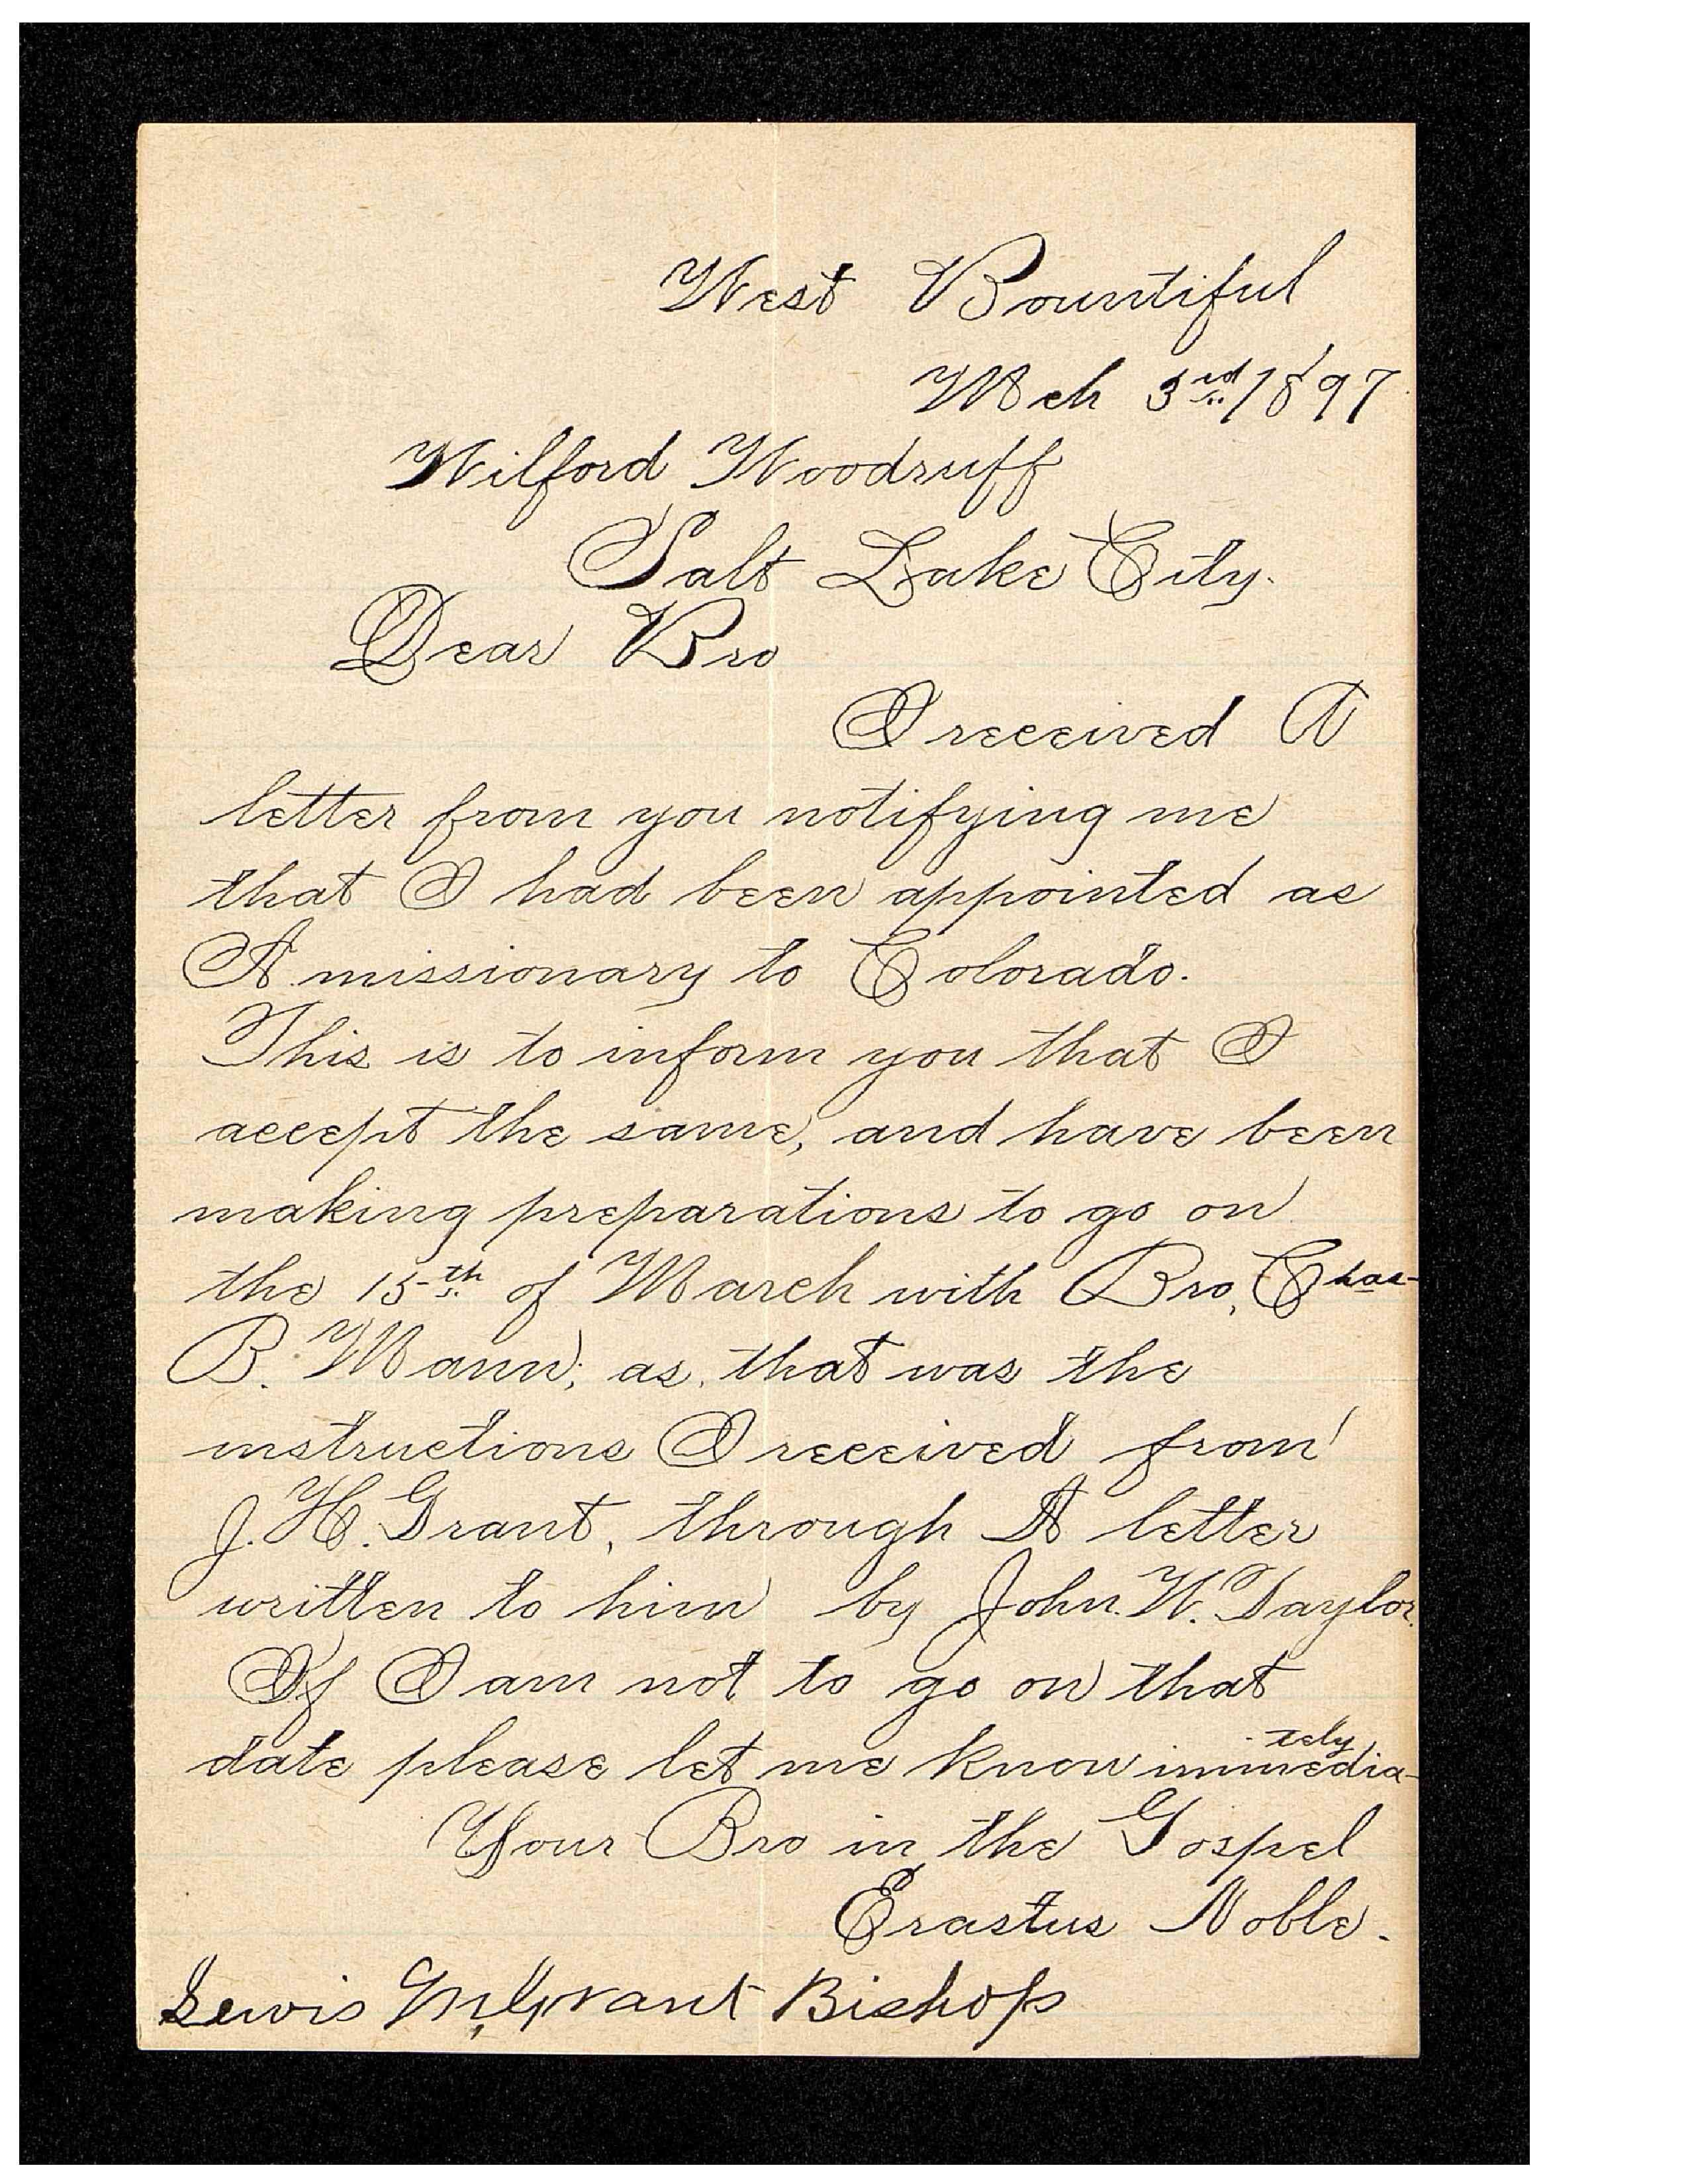 West Bountiful
Mch 3rd 1897
Wilford Woodruff
Salt Lake City.
Dear Bro
I received A
letter from you notifying me
that I had been appointed as
A missionary to Colorado.
This is to inform you that I
accept the same, and have been
making preparations to go on
the 15th of March with Bro, Chas-
B. Mann; as that was the
instructions I received from
J. H. Grant, through A letter
written to him by John. W. Taylor.
If I am not to go on that
date please let me know immedia-
tely
Your Bro in the Gospel
Erastus Noble.
Lewis M, Grant Bishop